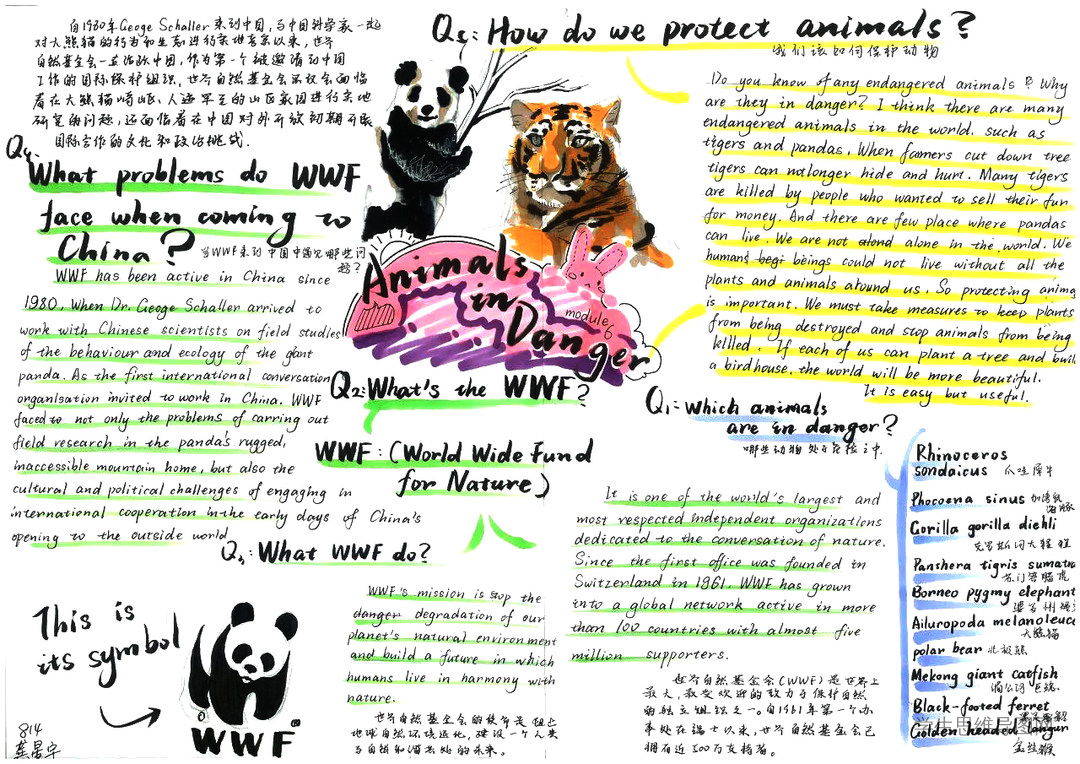 自1980年Geoge Schaller来到中国，与中国科学家一起
对大熊猫的行为和生态进行实地考察以来，世界
自然基金会一直活跃中国，作为第一个被邀请到中国
工作的国际保护组织，世界自然基金会不仅会面临
着在大熊猫崎岖、人迹罕至的山区家园进行实地
研究的问题，还面临着在中国对外开放初期开展
国际合作的文化和政治挑战.
Q4.
What problems do WWF
face when coming to
China?
当WWF来到中国中遇见哪些问
题？
WWF has been active in China since
1980, When Dr. Geoge Schaller arrived to
work with Chinese scientists on field studies
of the behaviour and ecology of the giant
panda. As the first international conversation
organisation invited to work in China. WWF
faced to not only the problems of carring out
field research in the panda's rugged,
inaccessible mountain home, but also the
cultural and political challenges of engaging in
international cooperation in the early days of China's
opening to the outside world
Q5: How do we protect animals?
我们该如何保护动物
Do you know of any endangered animals? Why
are they in danger? I think there are many
endangered animals in the world. such as
tigers and pandas. When farmers cut down tree
tigers can notlonger hide and hurt. Many tigers
are killed by people who wanted to sell their fur
for money. And there are few place where pandas
can live. We are not alone in the world. We
humans beings could not live without all the
plants and animals around us. So protecting anima
is important. We must take measures to keep plants
from being destroyed and stop animals from being
killed. If each of us can plant a tree and buil
a birdhouse, the world will be more beautiful.
It is easy but useful.
Animals
in
Danger
module 6
Q2: What's the WWF?
WWF: (World Wide Fund
for Nature)
It is one of the world's largest and
most respected independent organizations
dedicated to the conversation of nature.
Since the first office was founded in
Switzerland in 1961, WWF has grown
into a global network active in more
than 100 countries with almost five
million supporters.
世界自然基金会(WWF)是世界上
最大，最受欢迎的致力于保护自然
的独立组织之一。自1961年第一个办
事处在瑞士以来，世界自然基金会已
拥有近500万支持者。
Q1: Which animals
are in danger?
哪些动物处在危险之中.
Rhinoceros
sondaicus 爪哇犀牛
Phocoena sinus 加湾鼠
海豚
Gorilla gorilla diehli
克罗斯河大猩猩
Panshera tigris sumatra
苏门答腊虎
Borneo pygmy elephant
婆罗洲
Ailuropoda melanoleuca
大熊猫
polar bear 北极熊
Mekong giant catfish
湄公河巨鲶
Black-footed ferret
Golden headed langur
金丝猴
学生思维导图网
Q3: What WWF do?
WWF's mission is stop the
danger degradation of our
planet's natural environment
and build a future in which
humans live in harmony with
nature.
世界自然基金会的使命是阻止
地球自然环境退化，建设一个人类
与自然和谐相处的未来。
This is
its symbol
WWF
814
龚晏宇